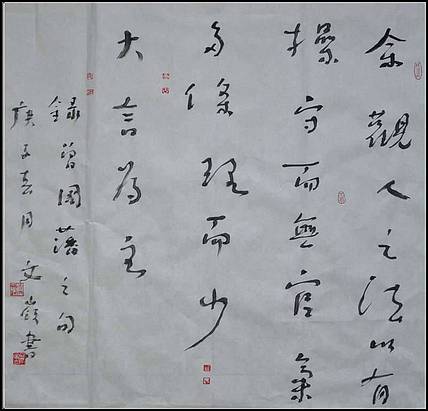 余觀人之法以有
操守而無官氣
多條理而少
大言為主
錄曾國藩之句
庚子春月文嶺書